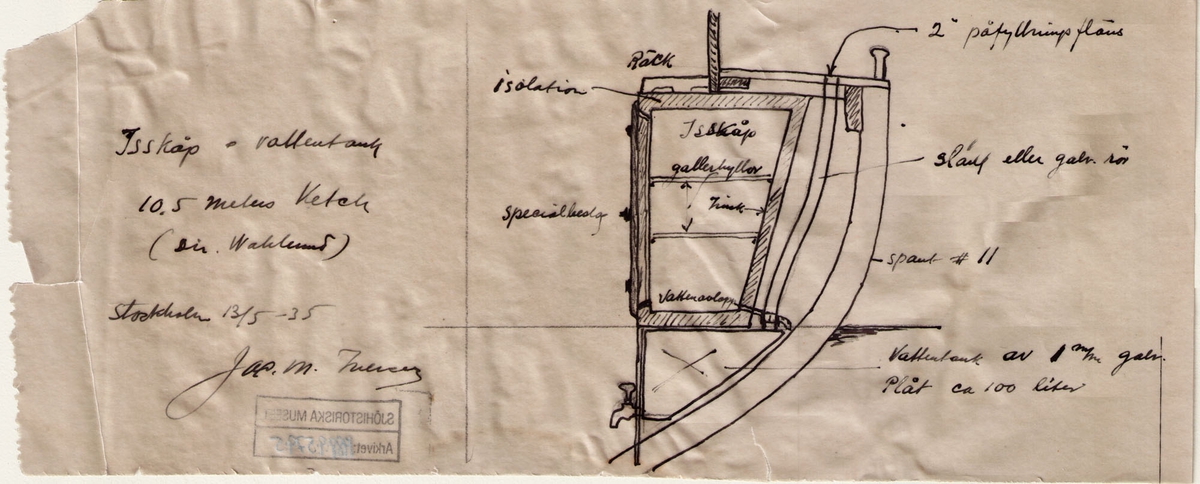 Isskåp o vattentank
10,5 meters Ketch
(dir. Wahlund)
Stockholm 13/5 -35
Jac. M. Iversen
SJÖHISTORISKA MUSEET
Arkivet:
Räck
isolation
2" påfyllningsfläns
Isskåp
gallerhyllor
zink
slang eller galv. rör
spant # 11
Vattenavlopp
Vattentank av 1 m/m galv.
Plåt ca 100 liter